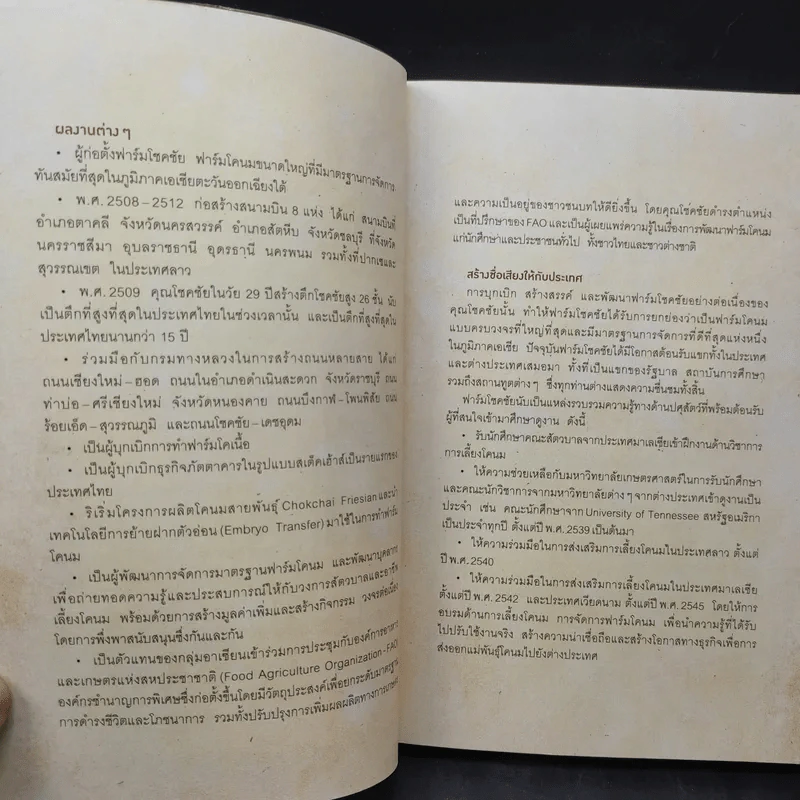 ผลงานต่าง ๆ
• ผู้ก่อตั้งฟาร์มโชคชัย ฟาร์มโคนมขนาดใหญ่ที่มีมาตรฐานการจัดการ
ทันสมัยที่สุดในภูมิภาคเอเชียตะวันออกเฉียงใต้
• พ.ศ. 2508 – 2512 ก่อสร้างสนามบิน 8 แห่ง ได้แก่ สนามบินที่
อำเภอตาคลี จังหวัดนครสวรรค์ อำเภอสัตหีบ จังหวัดชลบุรี ที่จังหวัด
นครราชสีมา อุบลราชธานี อุดรธานี นครพนม รวมทั้งที่ปากเซและ
สุวรรณเขต ในประเทศลาว
• พ.ศ. 2509 คุณโชคชัยในวัย 29 ปีสร้างตึกโชคชัยสูง 26 ชั้น นับ
เป็นตึกที่สูงที่สุดในประเทศไทยในช่วงเวลานั้น และเป็นตึกที่สูงที่สุดใน
ประเทศไทยนานกว่า 15 ปี
• ร่วมมือกับกรมทางหลวงในการสร้างถนนหลายสาย ได้แก่
ถนนเชียงใหม่ – ฮอด ถนนในอำเภอดำเนินสะดวก จังหวัดราชบุรี ถนน
ท่าบ่อ – ศรีเชียงใหม่ จังหวัดหนองคาย ถนนบึงกาฬ – โพนพิสัย ถนน
ร้อยเอ็ด – สุวรรณภูมิ และถนนโชคชัย – เดชอุดม
• เป็นผู้บุกเบิกการทำฟาร์มโคเนื้อ
• เป็นผู้บุกเบิกธุรกิจภัตตาคารในรูปแบบสเต็คเฮ้าส์เป็นรายแรกของ
ประเทศไทย
• ริเริ่มโครงการผลิตโคนมสายพันธุ์ Chokchai Friesian และนำ
เทคโนโลยีการย้ายฝากตัวอ่อน (Embryo Transfer) มาใช้ในการทำฟาร์ม
โคนม
• เป็นผู้พัฒนาการจัดการมาตรฐานฟาร์มโคนม และพัฒนาบุคลากร
เพื่อถ่ายทอดความรู้และประสบการณ์ให้กับวงการสัตวบาลและอาชีพ
เลี้ยงโคนม พร้อมด้วยการสร้างมูลค่าเพิ่มและสร้างกิจกรรม วงจรต่อเนื่อง
โดยการพึ่งพาสนับสนุนซึ่งกันและกัน
• เป็นตัวแทนของกลุ่มอาเซียนเข้าร่วมการประชุมกับองค์การอาหาร
และเกษตรแห่งสหประชาชาติ (Food Agriculture Organization - FAO)
องค์กรชำนาญการพิเศษซึ่งก่อตั้งขึ้นโดยมีวัตถุประสงค์เพื่อยกระดับมาตรฐาน
การดำรงชีวิตและโภชนาการ รวมทั้งปรับปรุงการเพิ่มผลผลิตทางการเกษตร
และความเป็นอยู่ของชาวชนบทให้ดียิ่งขึ้น โดยคุณโชคชัยดำรงตำแหน่ง
เป็นที่ปรึกษาของ FAO และเป็นผู้เผยแพร่ความรู้ในเรื่องการพัฒนาฟาร์มโคนม
แก่นักศึกษาและประชาชนทั่วไป ทั้งชาวไทยและชาวต่างชาติ
สร้างชื่อเสียงให้กับประเทศ
การบุกเบิก สร้างสรรค์ และพัฒนาฟาร์มโชคชัยอย่างต่อเนื่องของ
คุณโชคชัยนั้น ทำให้ฟาร์มโชคชัยได้รับการยกย่องว่าเป็นฟาร์มโคนม
แบบครบวงจรที่ใหญ่ที่สุดและมีมาตรฐานการจัดการที่ดีที่สุดแห่งหนึ่ง
ในภูมิภาคเอเชีย ปัจจุบันฟาร์มโชคชัยได้มีโอกาสต้อนรับแขกทั้งในประเทศ
และต่างประเทศเสมอมา ทั้งที่เป็นแขกของรัฐบาล สถาบันการศึกษา
รวมถึงสถานทูตต่าง ๆ ซึ่งทุกท่านต่างแสดงความชื่นชมทั้งสิ้น
ฟาร์มโชคชัยนับเป็นแหล่งรวบรวมความรู้ทางด้านปศุสัตว์ที่พร้อมต้อนรับ
ผู้ที่สนใจเข้ามาศึกษาดูงาน ดังนี้
• รับนักศึกษาคณะสัตวบาลจากประเทศมาเลเซียเข้าฝึกงานด้านวิชาการ
การเลี้ยงโคนม
• ให้ความช่วยเหลือกับมหาวิทยาลัยเกษตรศาสตร์ในการรับนักศึกษา
และคณะนักวิชาการจากมหาวิทยาลัยต่าง ๆ จากต่างประเทศเข้าดูงานเป็น
ประจำ เช่น คณะนักศึกษาจาก University of Tennessee สหรัฐอเมริกา
เป็นประจำทุกปี ตั้งแต่ปี พ.ศ. 2539 เป็นต้นมา
• ให้ความร่วมมือในการส่งเสริมการเลี้ยงโคนมในประเทศลาว ตั้งแต่
ปี พ.ศ. 2540
• ให้ความร่วมมือในการส่งเสริมการเลี้ยงโคนมในประเทศมาเลเซีย
ตั้งแต่ปี พ.ศ. 2542 และประเทศเวียดนาม ตั้งแต่ปี พ.ศ. 2545 โดยให้การ
อบรมด้านการเลี้ยงโคนม การจัดการฟาร์มโคนม เพื่อนำความรู้ที่ได้รับ
ไปปรับใช้งานจริง สร้างความน่าเชื่อถือและสร้างโอกาสทางธุรกิจเพื่อการ
ส่งออกแม่พันธุ์โคนมไปยังต่างประเทศ